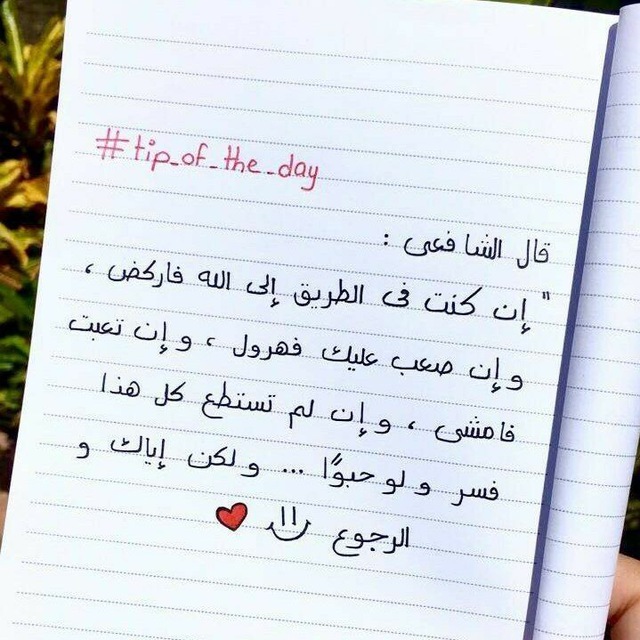 #tip_of_the_day
قال الشافعى :
" إن كنت فى الطريق إلى الله فاركض ،
و إن صعب عليك فهرول ، و إن تعبت
فامشى ، و إن لم تستطع كل هذا
فسر و لو حبوًا ... و لكن إياك و
الرجوع "